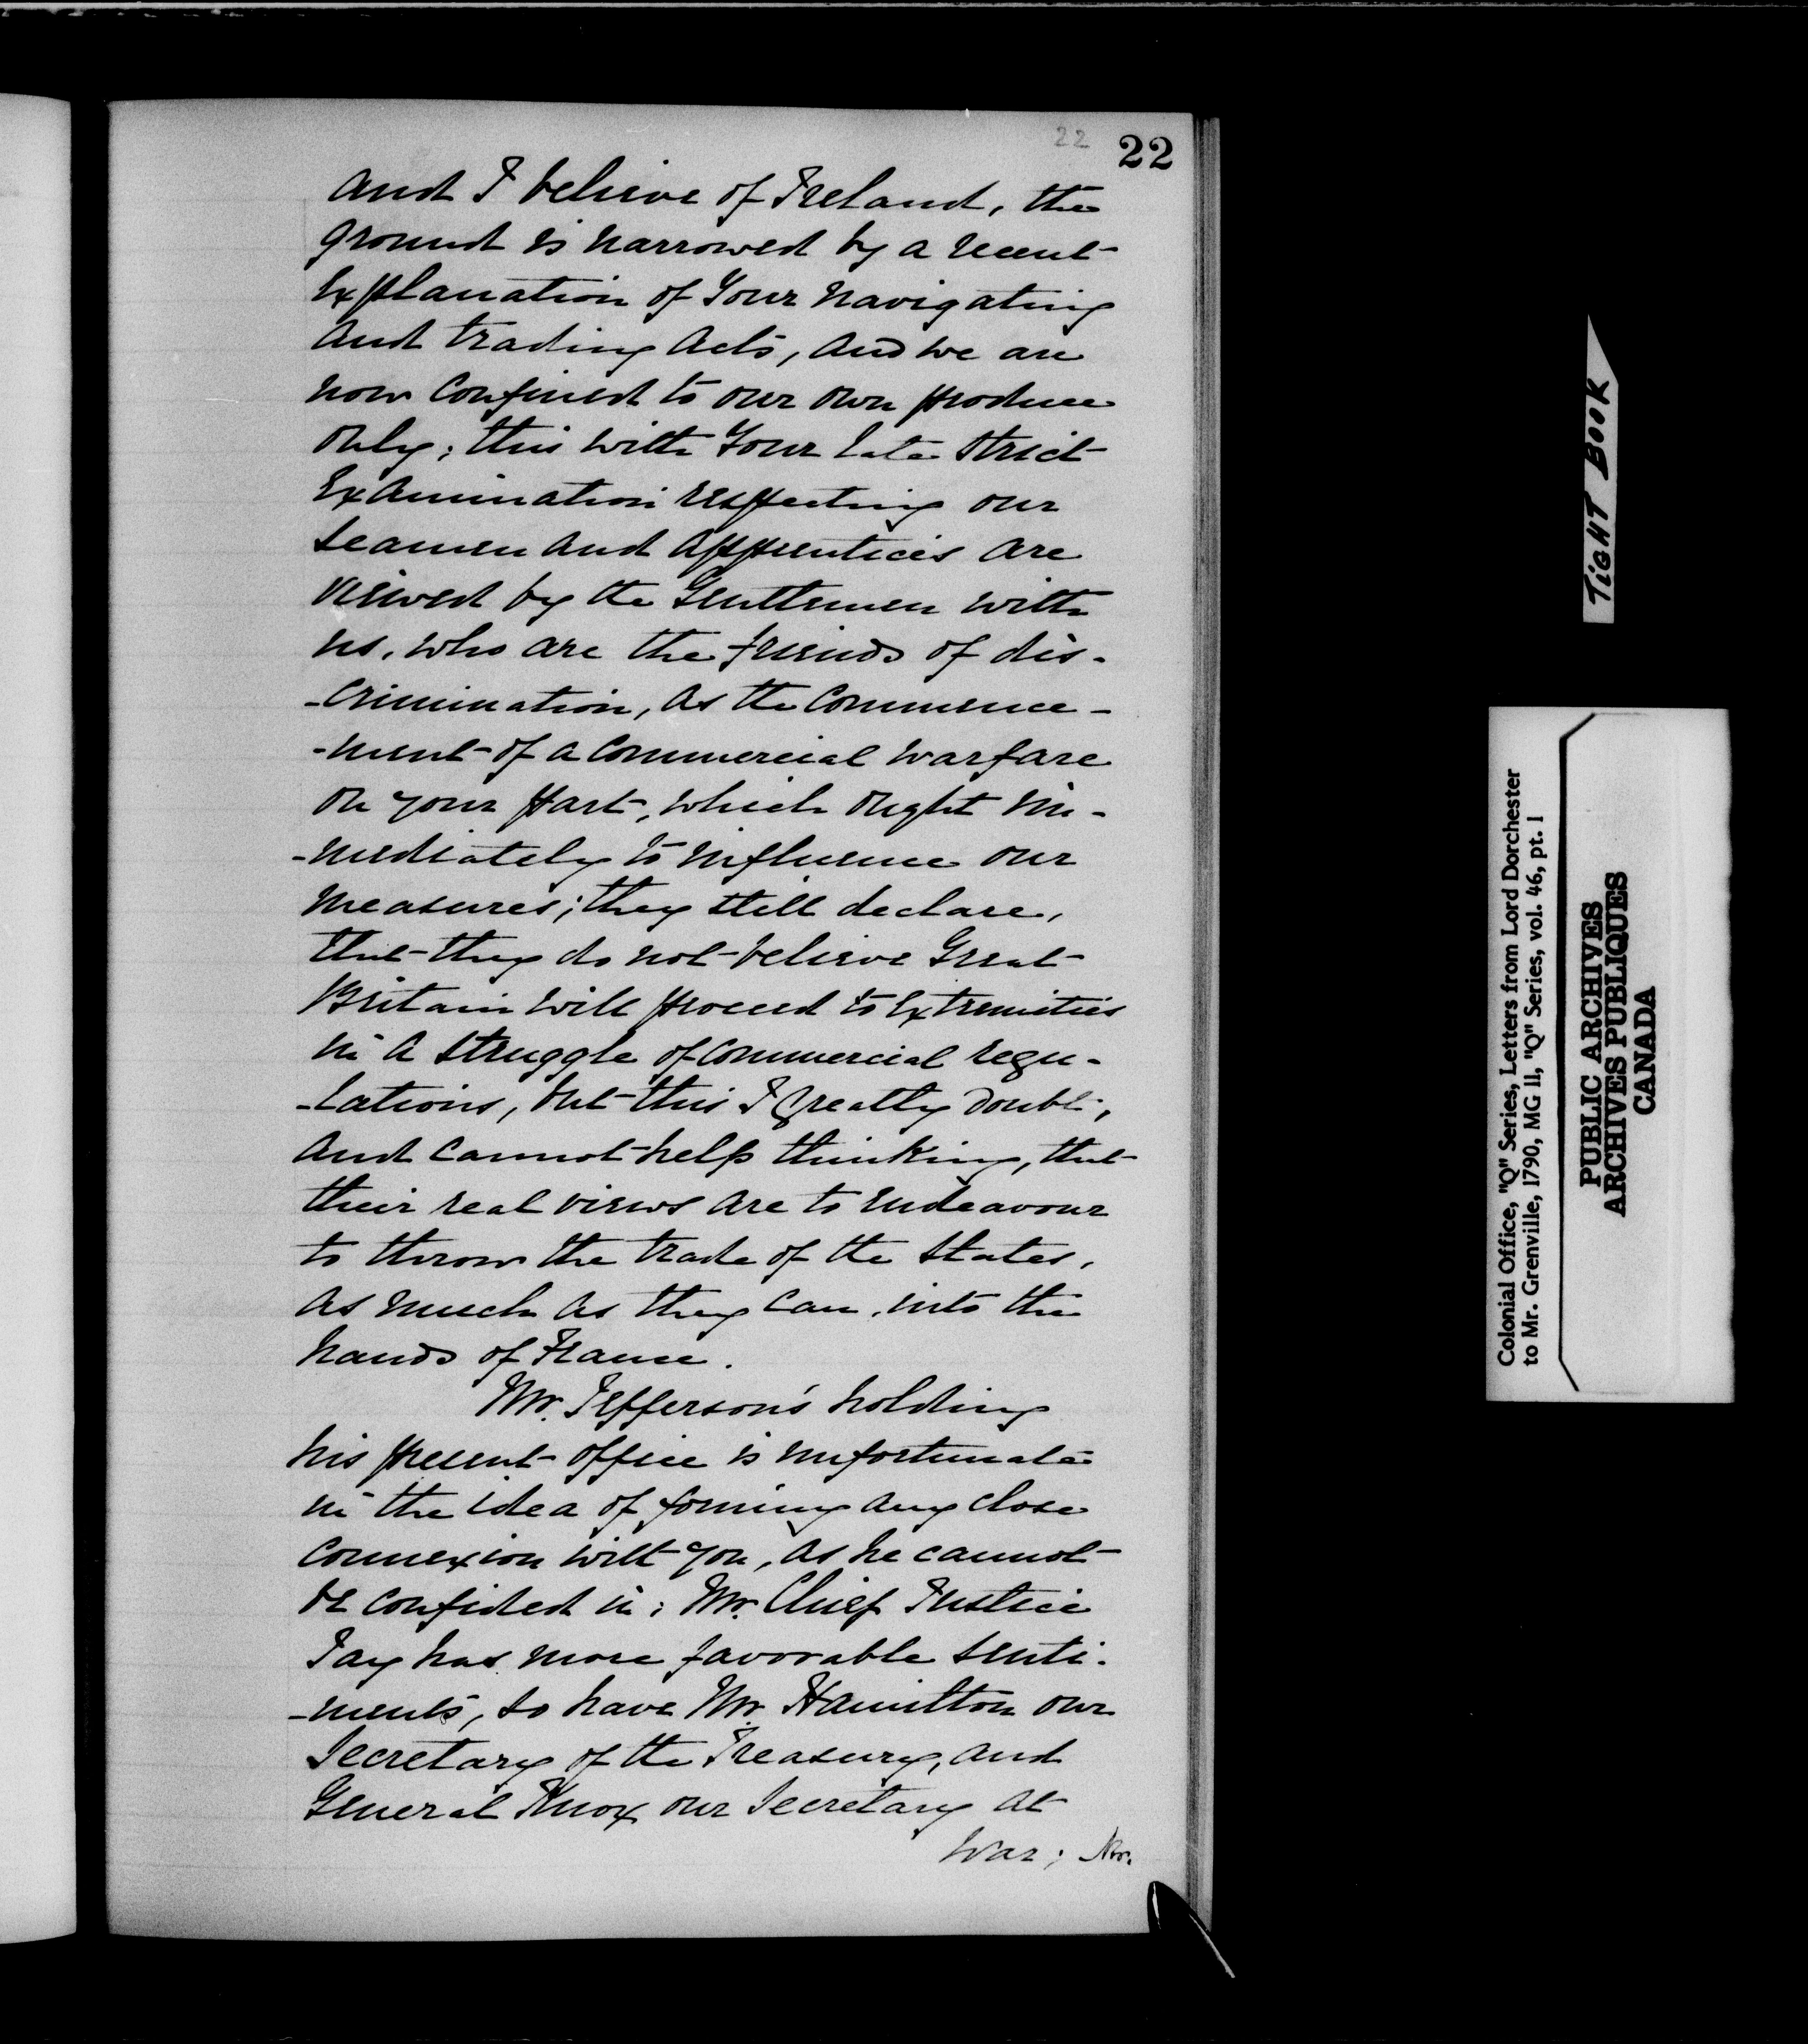 22 22
and I believe of Ireland, the
ground is narrowed by a recent
explanation of Your navigating
and trading acts, and we are
now confined to our own produce
only; this with Your late strict
examination respecting our
seamen and apprentices are
viewed by the Gentlemen with
us, who are the friends of dis-
-crimination, as the commence-
-ment of a commercial warfare
on your part, which ought im-
-mediately to influence our
measures; they still declare,
that they do not believe Great
Britain will proceed to extremities
in a struggle of commercial regu-
-lations, but this I greatly doubt,
and cannot help thinking, that
their real views are to endeavour
to throw the trade of the States,
as much as they can, into the
hands of France.
Mr. Jefferson's holding
his present office is unfortunate
in the idea of forming any close
connexion with you, as he cannot
be confided in; Mr. Chief Justice
Jay has more favorable senti-
-ments, so have Mr. Hamilton our
Secretary of the Treasury, and
General Knox our Secretary at
War; Mr.
TIGHT BOOK
Colonial Office, "Q" Series, Letters from Lord Dorchester
to Mr. Grenville, 1790, MG 11, "Q" Series, vol. 46, pt. 1
PUBLIC ARCHIVES
ARCHIVES PUBLIQUES
CANADA